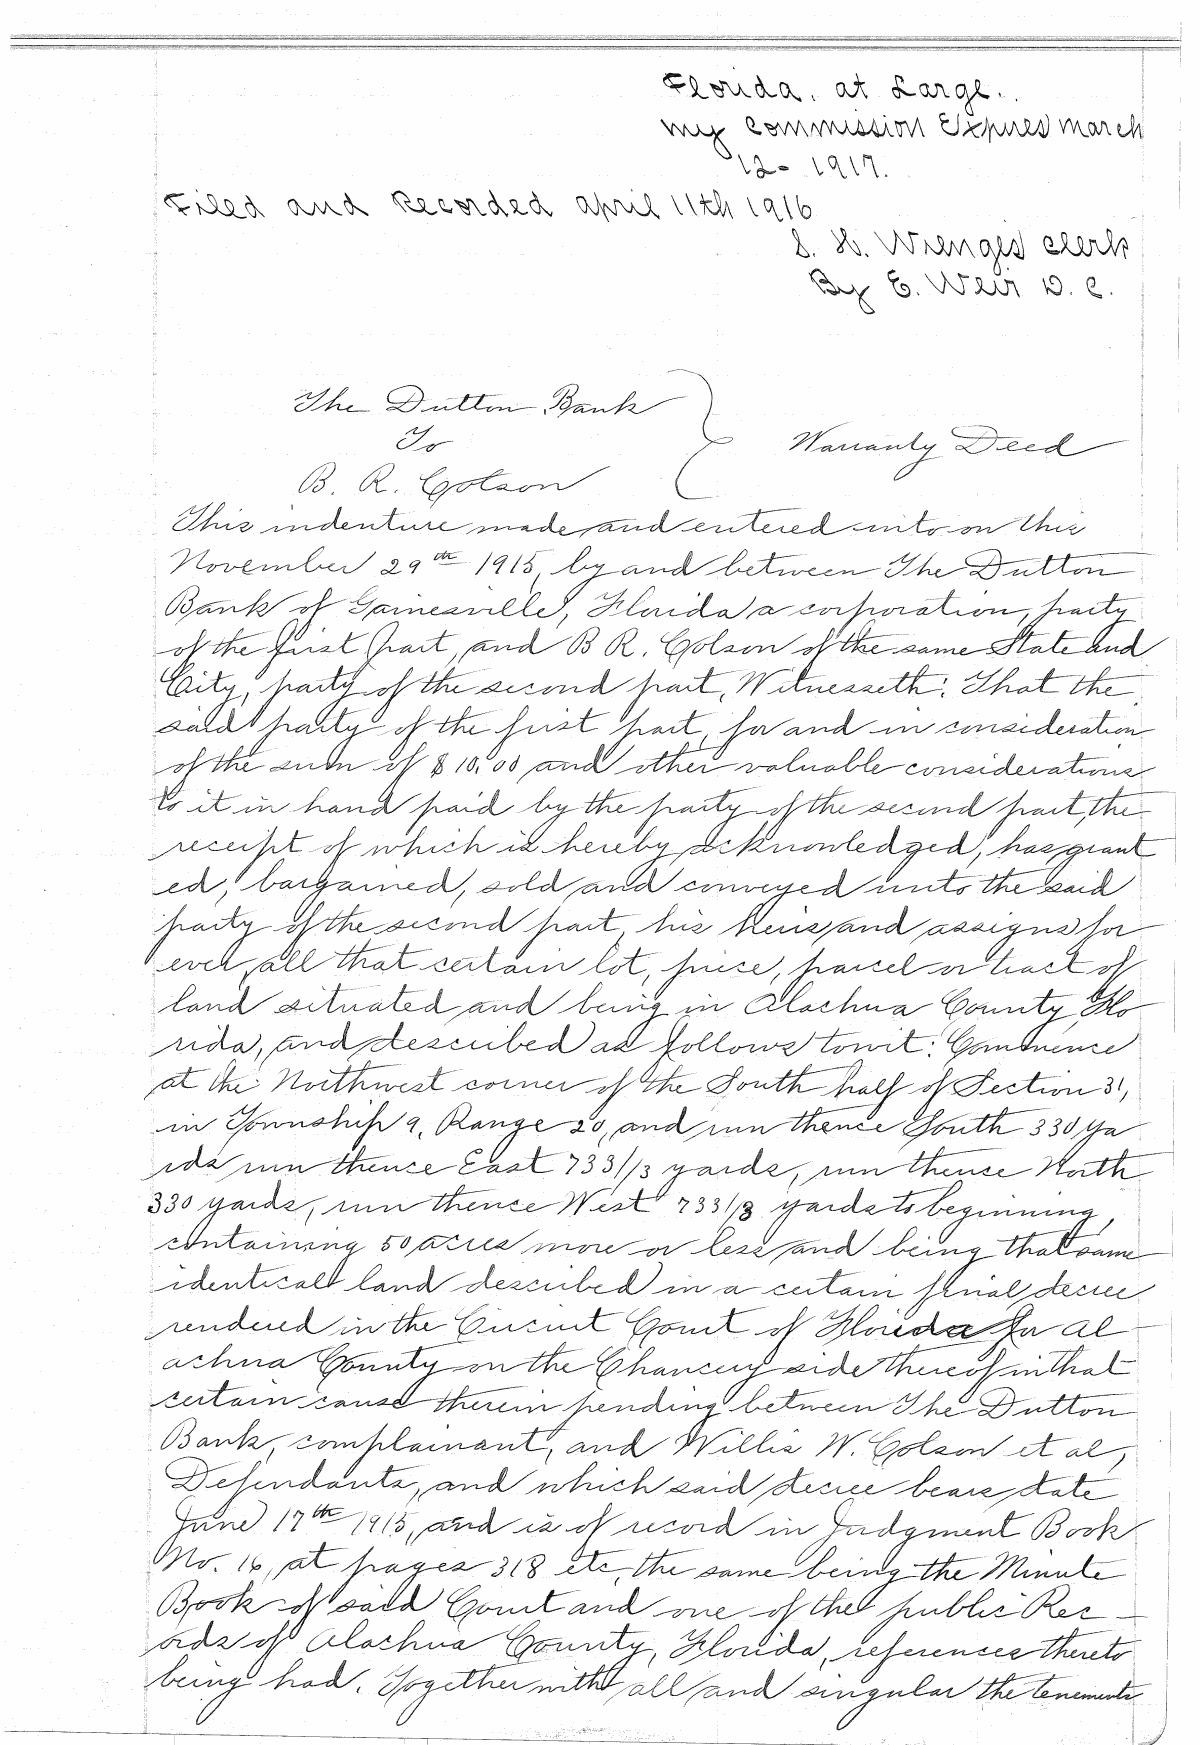 Florida, at Large.
my Commission Expires march
12- 1917.
Filed and Recorded april 11th 1916
S. H. Wienges clerk
By E. Weir D. C.
The Dutton Bank
To
Warranty Deed
B. R. Colson
This indenture made and entered into on this
November 29th 1915, by and between The Dutton
Bank of Gainesville, Florida a corporation, party
of the first part, and B R. Colson of the same State and
City, party of the second part, Witnesseth: That the
said party of the first part, for and in consideration
of the sum of $10.00 and other valuable considerations
to it in hand paid by the party of the second part, the
receipt of which is hereby acknowledged, has grant
ed, bargained, sold and conveyed unto the said
party of the second part, his heirs and assigns for
ever, all that certain lot, piece, parcel or tract of
land situated and being in Alachua County, Flo
rida, and described as follows towit: Commence
at the Northwest corner of the South half of Section 31,
in Township 9, Range 20, and run thence South 330 ya
rds run thence East 733 1/3 yards, run thence North
330 yards, run thence West 733 1/3 yards to beginning,
containing 50 acres more or less and being that same
identical land described in a certain final decree
rendered in the Circuit Court of Florida for Al
achua County on the Chancery side thereof in that
certain cause therein pending between The Dutton
Bank, complainant, and Willis W. Colson et al,
Defendants, and which said decree bears date
June 17th 1915, and is of record in Judgment Book
No. 16, at pages 318 etc, the same being the Minute
Book of said Court and one of the public Rec-
ords of Alachua County, Florida, references thereto
being had. Together with all and singular the tenements